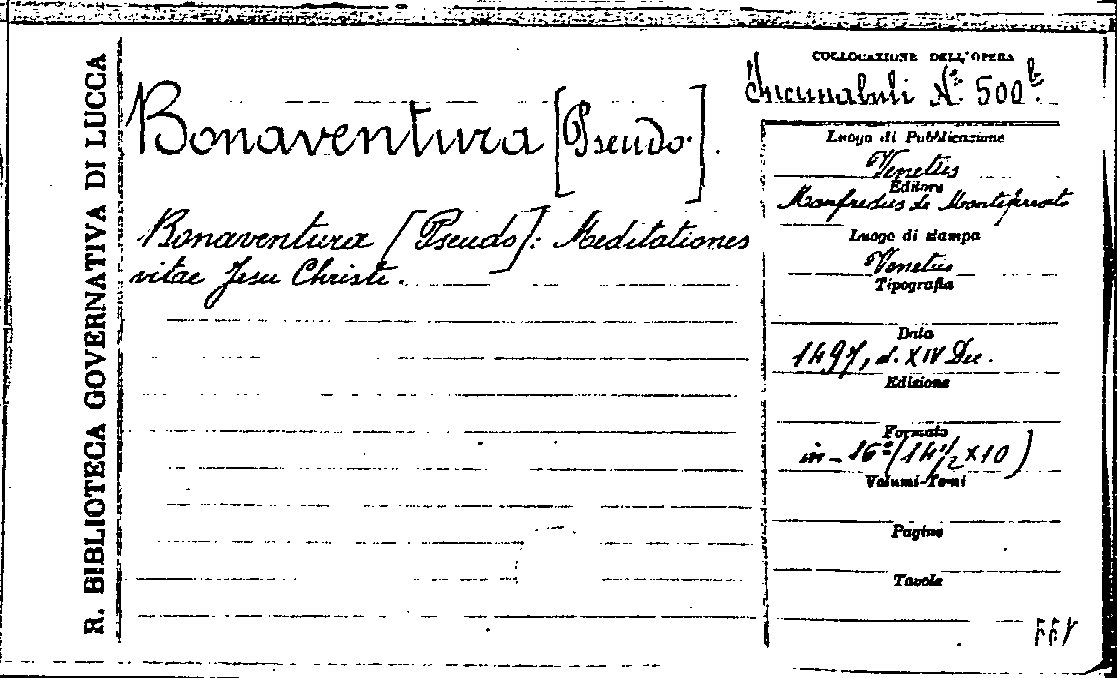 R. BIBLIOTECA GOVERNATIVA DI LUCCA
Bonaventura [Pseudo].
Bonaventura [Pseudo]: Meditationes
vitae Jesu Christi.
COLLOCAZIONE DELL'OPERA
Incunabuli N.º 500 b.
Luogo di Pubblicazione
Venetiis
Editore
Manfredus de Monteferrato
Luogo di stampa
Venetiis
Tipografia
Data
1497, d. XIV Dec.
Edizione
Formato
in-16º (14 1/2 x 10)
Volumi-Tomi
Pagine
Tavole